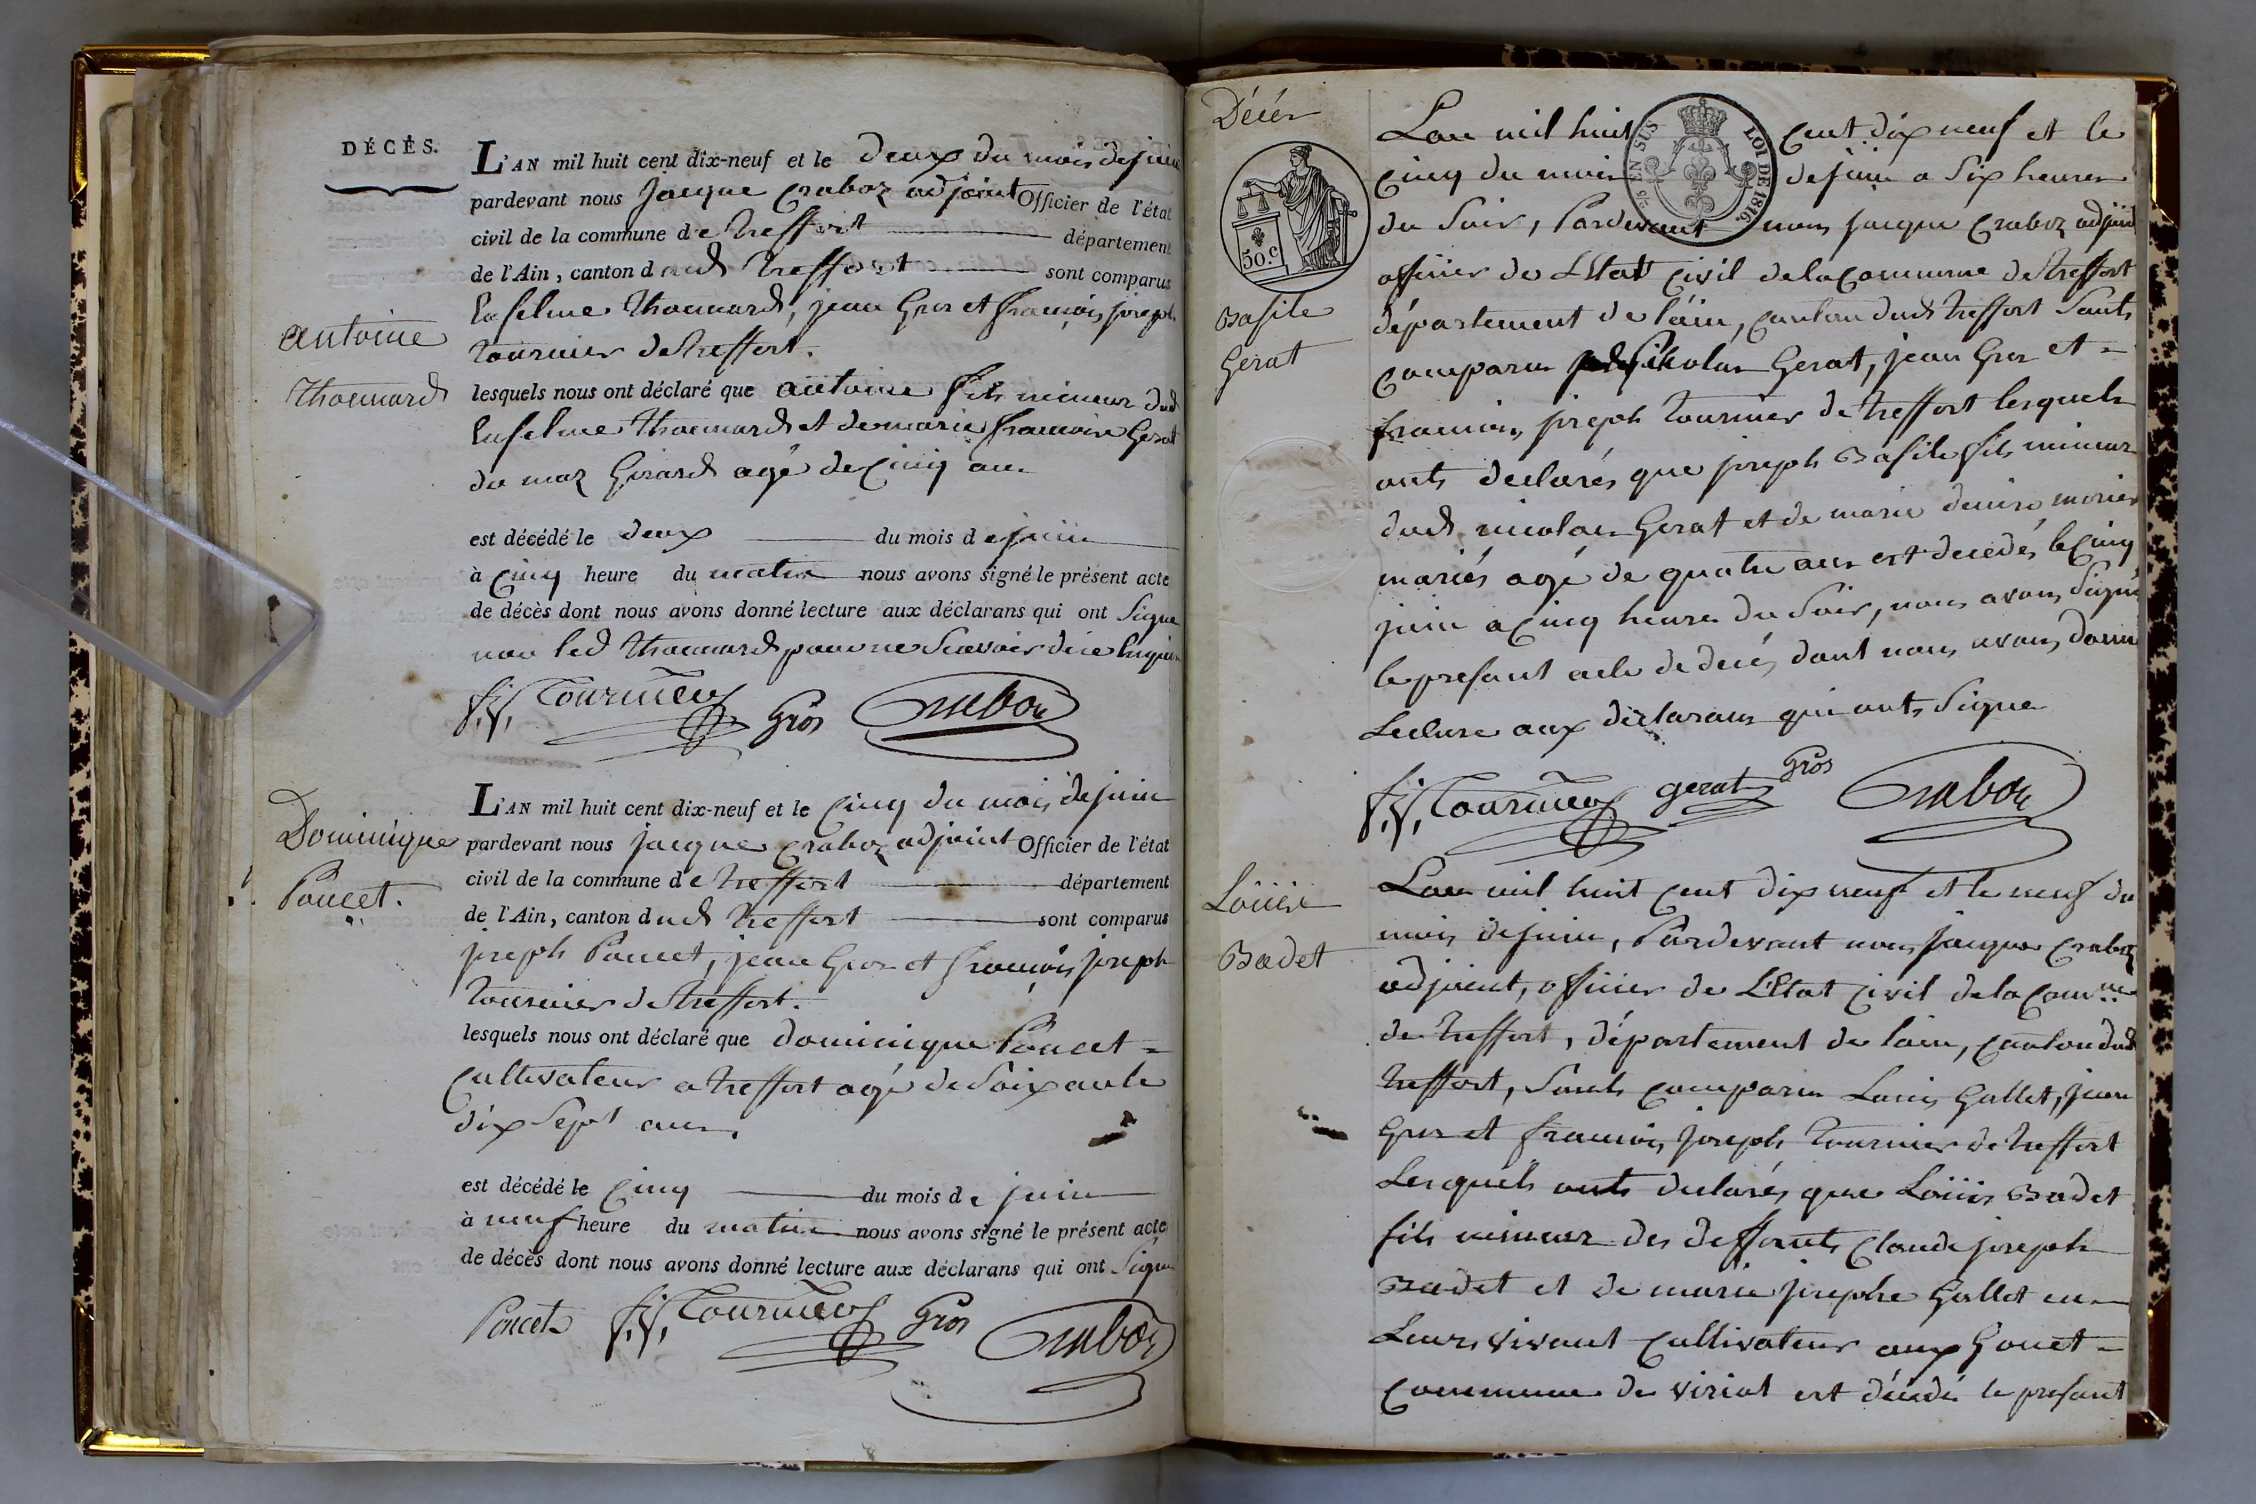 DÉCÈS.
L'AN mil huit cent dix-neuf et le deux du mois de juin
pardevant nous jacque Craboz adjoint Officier de l'état
civil de la commune de treffort département
de l'Ain, canton dud treffort sont comparus
thoumard, jean Gros et françois joseph
tournier de treffort.
antoine
thoumard
lesquels nous ont déclaré que antoine fils mineur dud
thoumard et de marie françoise Gerat
du maz Girard agé de Cinq ans
est décédé le deux du mois de juin
à Cinq heure du matin nous avons signé le présent acte
de décès dont nous avons donné lecture aux déclarans qui ont Signe
non led thoumard pour ne Scavoir de ce
f.j. Tournier Gros Craboz
Dominique
Poncet.
L'AN mil huit cent dix-neuf et le Cinq du mois de juin
pardevant nous jacque Craboz adjoint Officier de l'état
civil de la commune de treffort département
de l'Ain, canton dud treffort sont comparus
joseph Poncet, jean Gros et françois joseph
tournier de treffort.
lesquels nous ont déclaré que dominique Poncet =
Cultivateur a treffort agé de Soixante
dix Sept ans.
est décédé le Cinq du mois de juin
à neuf heure du matin nous avons signé le présent acte
de décès dont nous avons donné lecture aux déclarans qui ont Signe
Poncet f.j. Tournier Gros Craboz
Décés
50.C
EN SUS LOI DE 1816.
Basile
Gerat
Lan mil huit cent dix neuf et le
Cinq du mois de juin a Six heures
du Soir, Pardevant nous jacque Craboz adjoint
officier de LEtat Civil de la Commune de treffort
département de l'ain, canton dud treffort Sonts
Comparus Nicolas Gerat, jean Gros et =
françois joseph tournier de treffort lesquels
onts declarés que joseph Basile fils mineur
dud nicolas Gerat et de marie denise morier
mariés agé de quatre ans est decedés le Cinq
juin a Cinq heures du Soir, nous avons Signé
le presant acte de decés dont nous avons donné
Lecture aux déclarans qui onts Signe
f.j. Tournier gerat Gros Craboz
Loüis
Badet
Lan mil huit Cent dix neuf et le neuf du
mois de juin, Pardevant nous jacque Craboz
adjoint, officier de LEtat Civil de la Comune
de treffort, département de lain, canton dud
treffort, Sonts Comparus Louis Gallet, jean
Gros et françois joseph tournier de treffort
Lesquels onts declarés que Loüis Badet
fils mineur des deffonts Claude joseph
Badet et de marie josephe Gallet en
Leurs vivant Cultivateurs aux Gouet =
Commune de viriat est décédé le presant